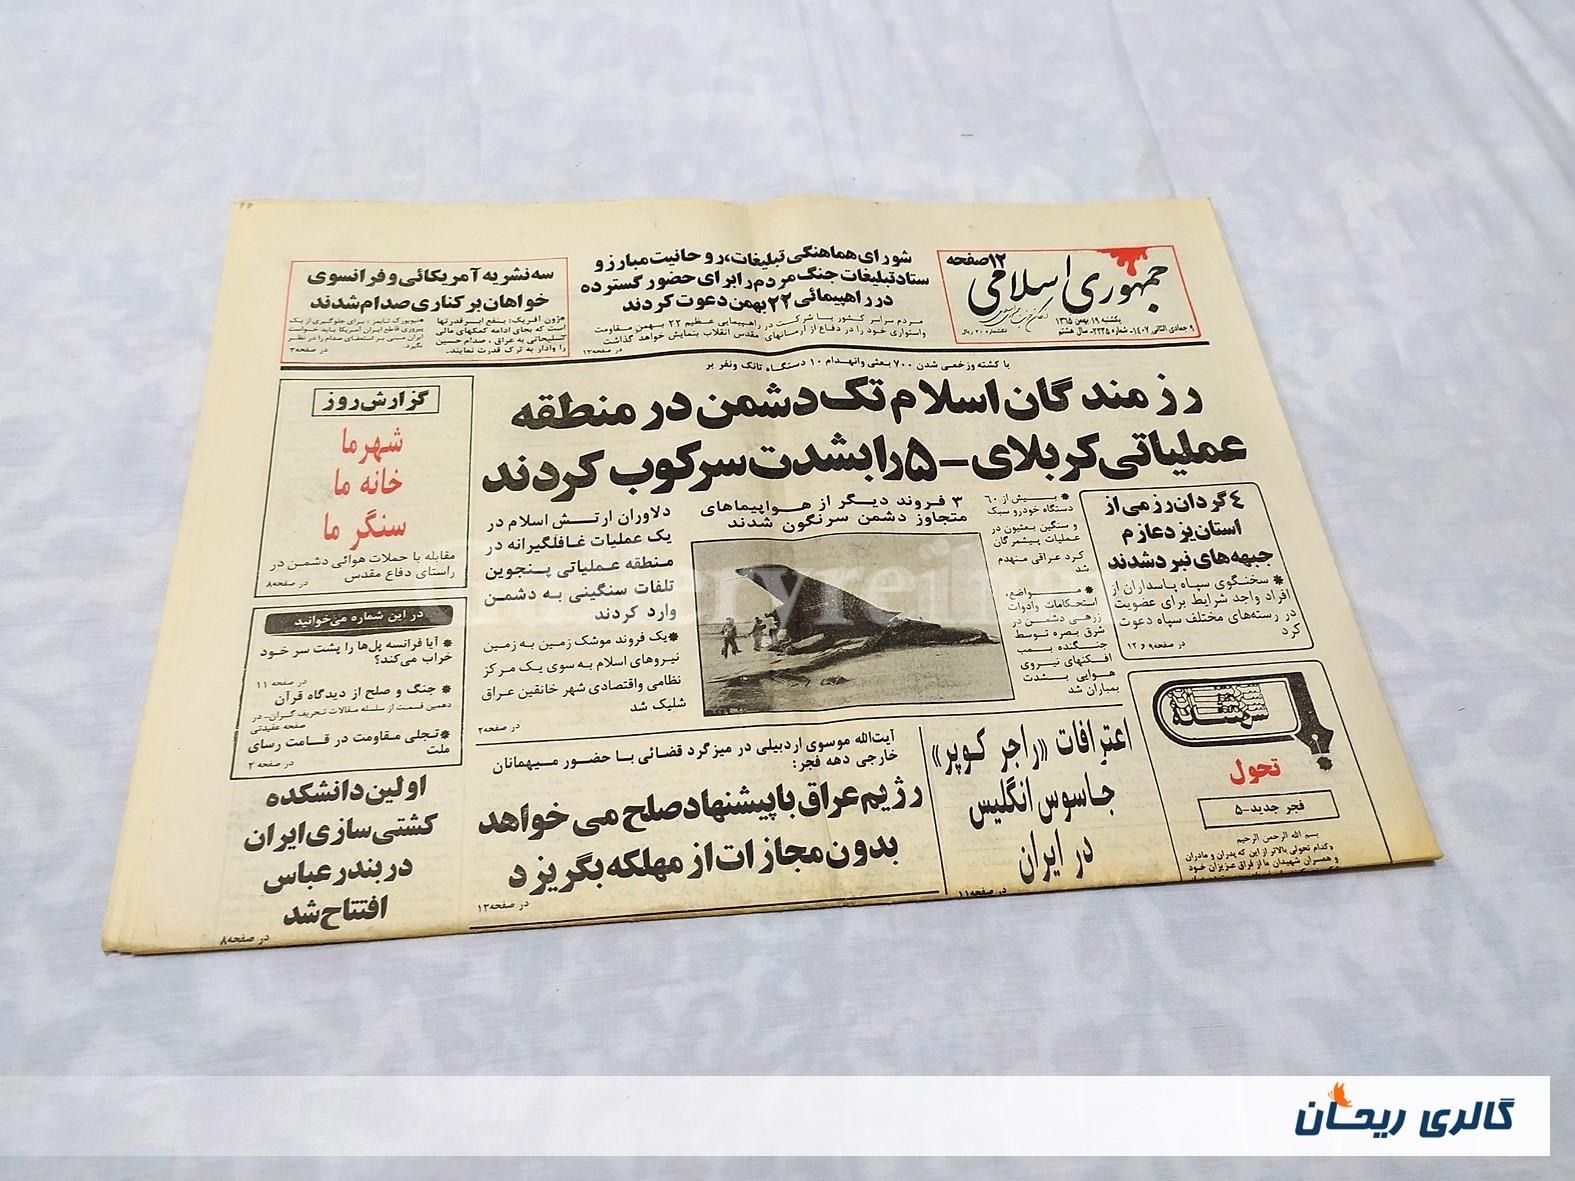 جمهوری اسلامی
۱۲صفحه
یکشنبه ۱۹ بهمن ۱۳۶۵
۹ جمادی الثانی ۱۴۰۷- شماره ۲۲۳۵- سال هشتم
تکشماره ۲۰ ریال
شورای هماهنگی تبلیغات، روحانیت مبارز و
ستاد تبلیغات جنگ مردم را برای حضور گسترده
در راهپیمائی ۲۲ بهمن دعوت کردند
مردم سراسر کشور با شرکت در راهپیمایی عظیم ۲۲ بهمن مقاومت
واستواری خود را در دفاع از آرمانهای مقدس انقلاب بنمایش خواهد گذاشت
در صفحه۱۲
سه نشریه آمریکائی و فرانسوی
خواهان برکناری صدام شدند
*ژون آفریک: بنفع ابرقدرتها
است که بجای ادامه کمکهای مالی
تسلیحاتی به عراق، صدام حسین
را وادار به ترک قدرت نمایند.
*نیویورک تایمز: برای جلوگیری از یک
پیروزی قاطع ایران آمریکا باید خواست
ایران مبنی بر استعفای صدام را در نظر
بگیرد.
در صفحه۳
با کشته وزخمی شدن ۷۰۰ بعثی وانهدام ۱۰ دستگاه تانک ونفر بر
رزمندگان اسلام تک دشمن در منطقه
عملیاتی کربلای -۵ را بشدت سرکوب کردند
۴ گردان رزمی از
استان یزد عازم
جبهه‌های نبرد شدند
* سخنگوی سپاه پاسداران از
افراد واجد شرایط برای عضویت
در رسته‌های مختلف سپاه دعوت
کرد
در صفحه۹ و ۱۲
* بیش از ۶۰
دستگاه خودرو سبک
و سنگین بعثیون در
عملیات پیشمرگان
کرد عراقی منهدم
شد
* مواضع،
استحکامات وادوات
زرهی دشمن در
شرق بصره توسط
جنگنده بمب
افکنهای نیروی
هوایی بشدت
بمباران شد
۳ فروند دیگر از هواپیماهای
متجاوز دشمن سرنگون شدند
دلاوران ارتش اسلام در
یک عملیات غافلگیرانه در
منطقه عملیاتی پنجوین
تلفات سنگینی به دشمن
وارد کردند
*یک فروند موشک زمین به زمین
نیروهای اسلام به سوی یک مرکز
نظامی واقتصادی شهر خانقین عراق
شلیک شد
در صفحه۲
گزارش روز
شهر ما
خانه ما
سنگر ما
مقابله با حملات هوائی دشمن در
راستای دفاع مقدس
در صفحه۸
در این شماره می‌خوانید
* آیا فرانسه پل‌ها را پشت سر خود
خراب می‌کند؟
در صفحه ۱۱
* جنگ و صلح از دیدگاه قرآن
دهمین قسمت از سلسله مقالات تحریف گران- در
صفحه عقیدتی
*تجلی مقاومت در قامت رسای
ملت
در صفحه ۲
سرمقاله
تحول
فجر جدید-۵
بسم الله الرحمن الرحیم
وکدام تحولی بالاتر از این که پدران و مادران
و همسران شهیدان ما از فراق عزیزان خود
اعترافات «راجر کوپر»
جاسوس انگلیس
در ایران
در صفحه۱۱
آیت‌الله موسوی اردبیلی در میزگرد قضائی با حضور میهمانان
خارجی دهه فجر:
رژیم عراق با پیشنهاد صلح می خواهد
بدون مجازات از مهلکه بگریزد
در صفحه۱۲
اولین دانشکده
کشتی سازی ایران
در بندر عباس
افتتاح شد
در صفحه۸
گالری ریحان